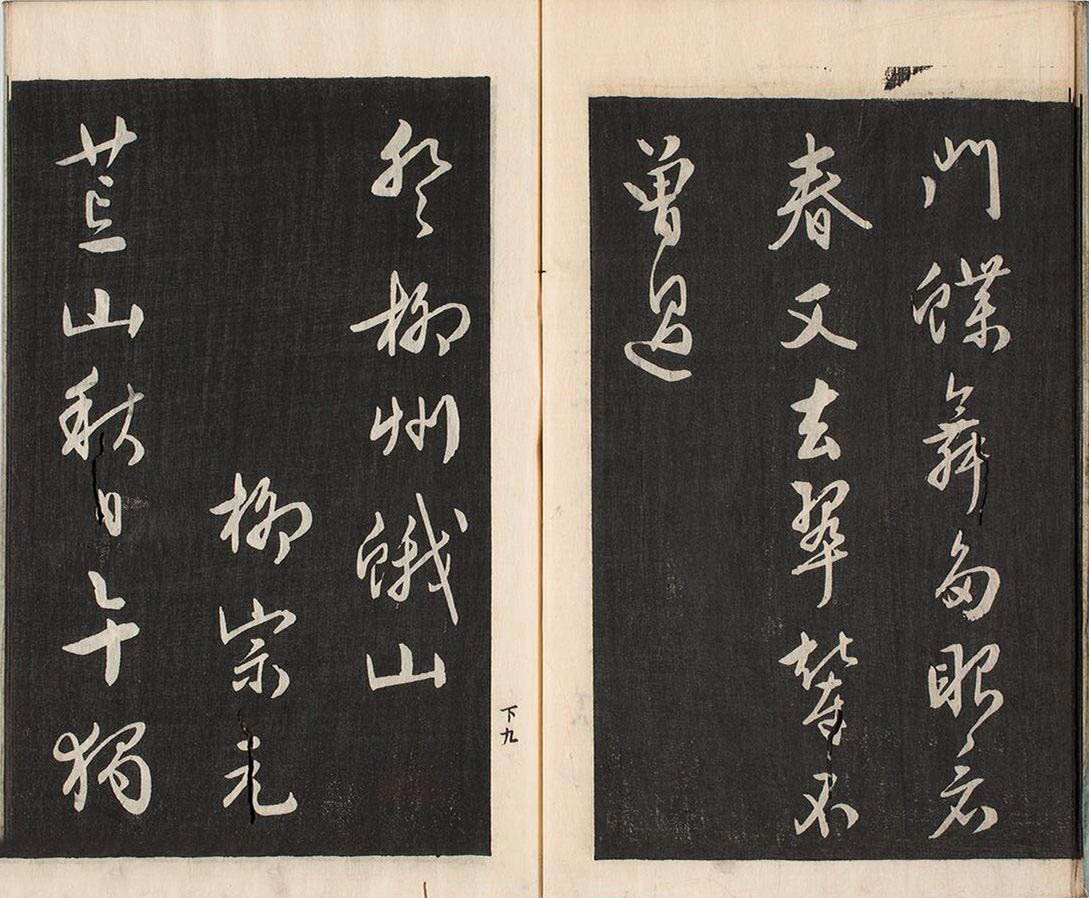 門蝶舞多眼看
春又去翠輦不
曾過
下九
登柳州蛾山
柳宗元
荒山秋日午獨